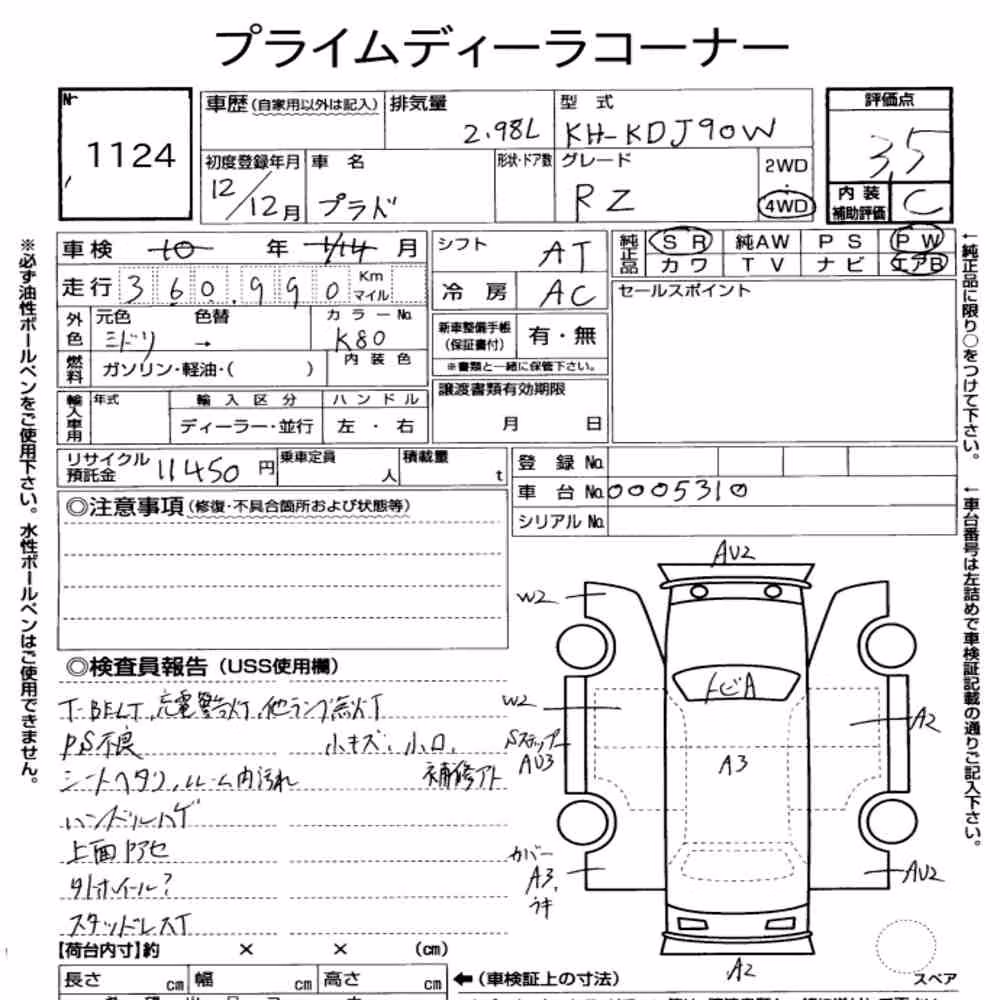 プライムディーラコーナー
№
1124
車歴(自家用以外は記入)
排気量
2.98L
型 式
KH-KDJ90W
評価点
3.5
内装
補助評価
C
初度登録年月
12/12月
車 名
プラド
形状・ドア数
グレード
RZ
2WD
・
4WD
車検 10 年 1/14 月
走行 360,990 Km マイル
シフト AT
冷 房 AC
純正品
SR 純AW PS PW
カワ TV ナビ エアB
セールスポイント
外色
元色 色替 カラーNo.
ミドリ → K80
燃料
ガソリン・軽油・( )
内装色
新車整備手帳
(保証書付)
有・無
※書類と一緒に保管下さい。
譲渡書類有効期限
月 日
輸入車用
年式
輸入区分
ハンドル
ディーラー・並行
左・右
リサイクル
預託金
11450 円
乗車定員
人
積載量
t
登 録 No.
車 台 No. 0005310
シリアル No.
◎注意事項(修復・不具合箇所および状態等)
◎検査員報告(USS使用欄)
T-BELT、充電警灯、他ランプ点灯
PS不良 小キズ、小凹、
シートヘタリ、ルーム内汚れ 補修アト
ハンドルハゲ
上面アセ
外ホイール?
スタッドレスT
AU2
W2
トビA
W2
Sステップ
AU3
A2
A3
カバー
A3、
ウキ
AU2
A2
スペア
【荷台内寸】約 × × (cm)
長さ cm 幅 cm 高さ cm
←(車検証上の寸法)
※必ず油性ボールペンをご使用下さい。水性ボールペンはご使用できません。
←純正品に限り○をつけて下さい。
←車台番号は左詰めで車検証記載の通りご記入下さい。